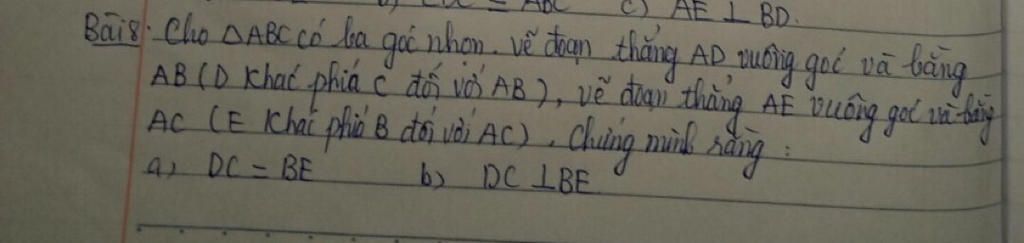 c) AE ⊥ BD.
Bài 8: Cho ΔABC có ba góc nhọn. vẽ đoạn thẳng AD vuông góc và bằng
AB (D khác phía C đối với AB), vẽ đoạn thẳng AE vuông góc và bằng
AC (E khác phía B đối với AC). Chứng minh rằng:
a) DC = BE b) DC ⊥ BE